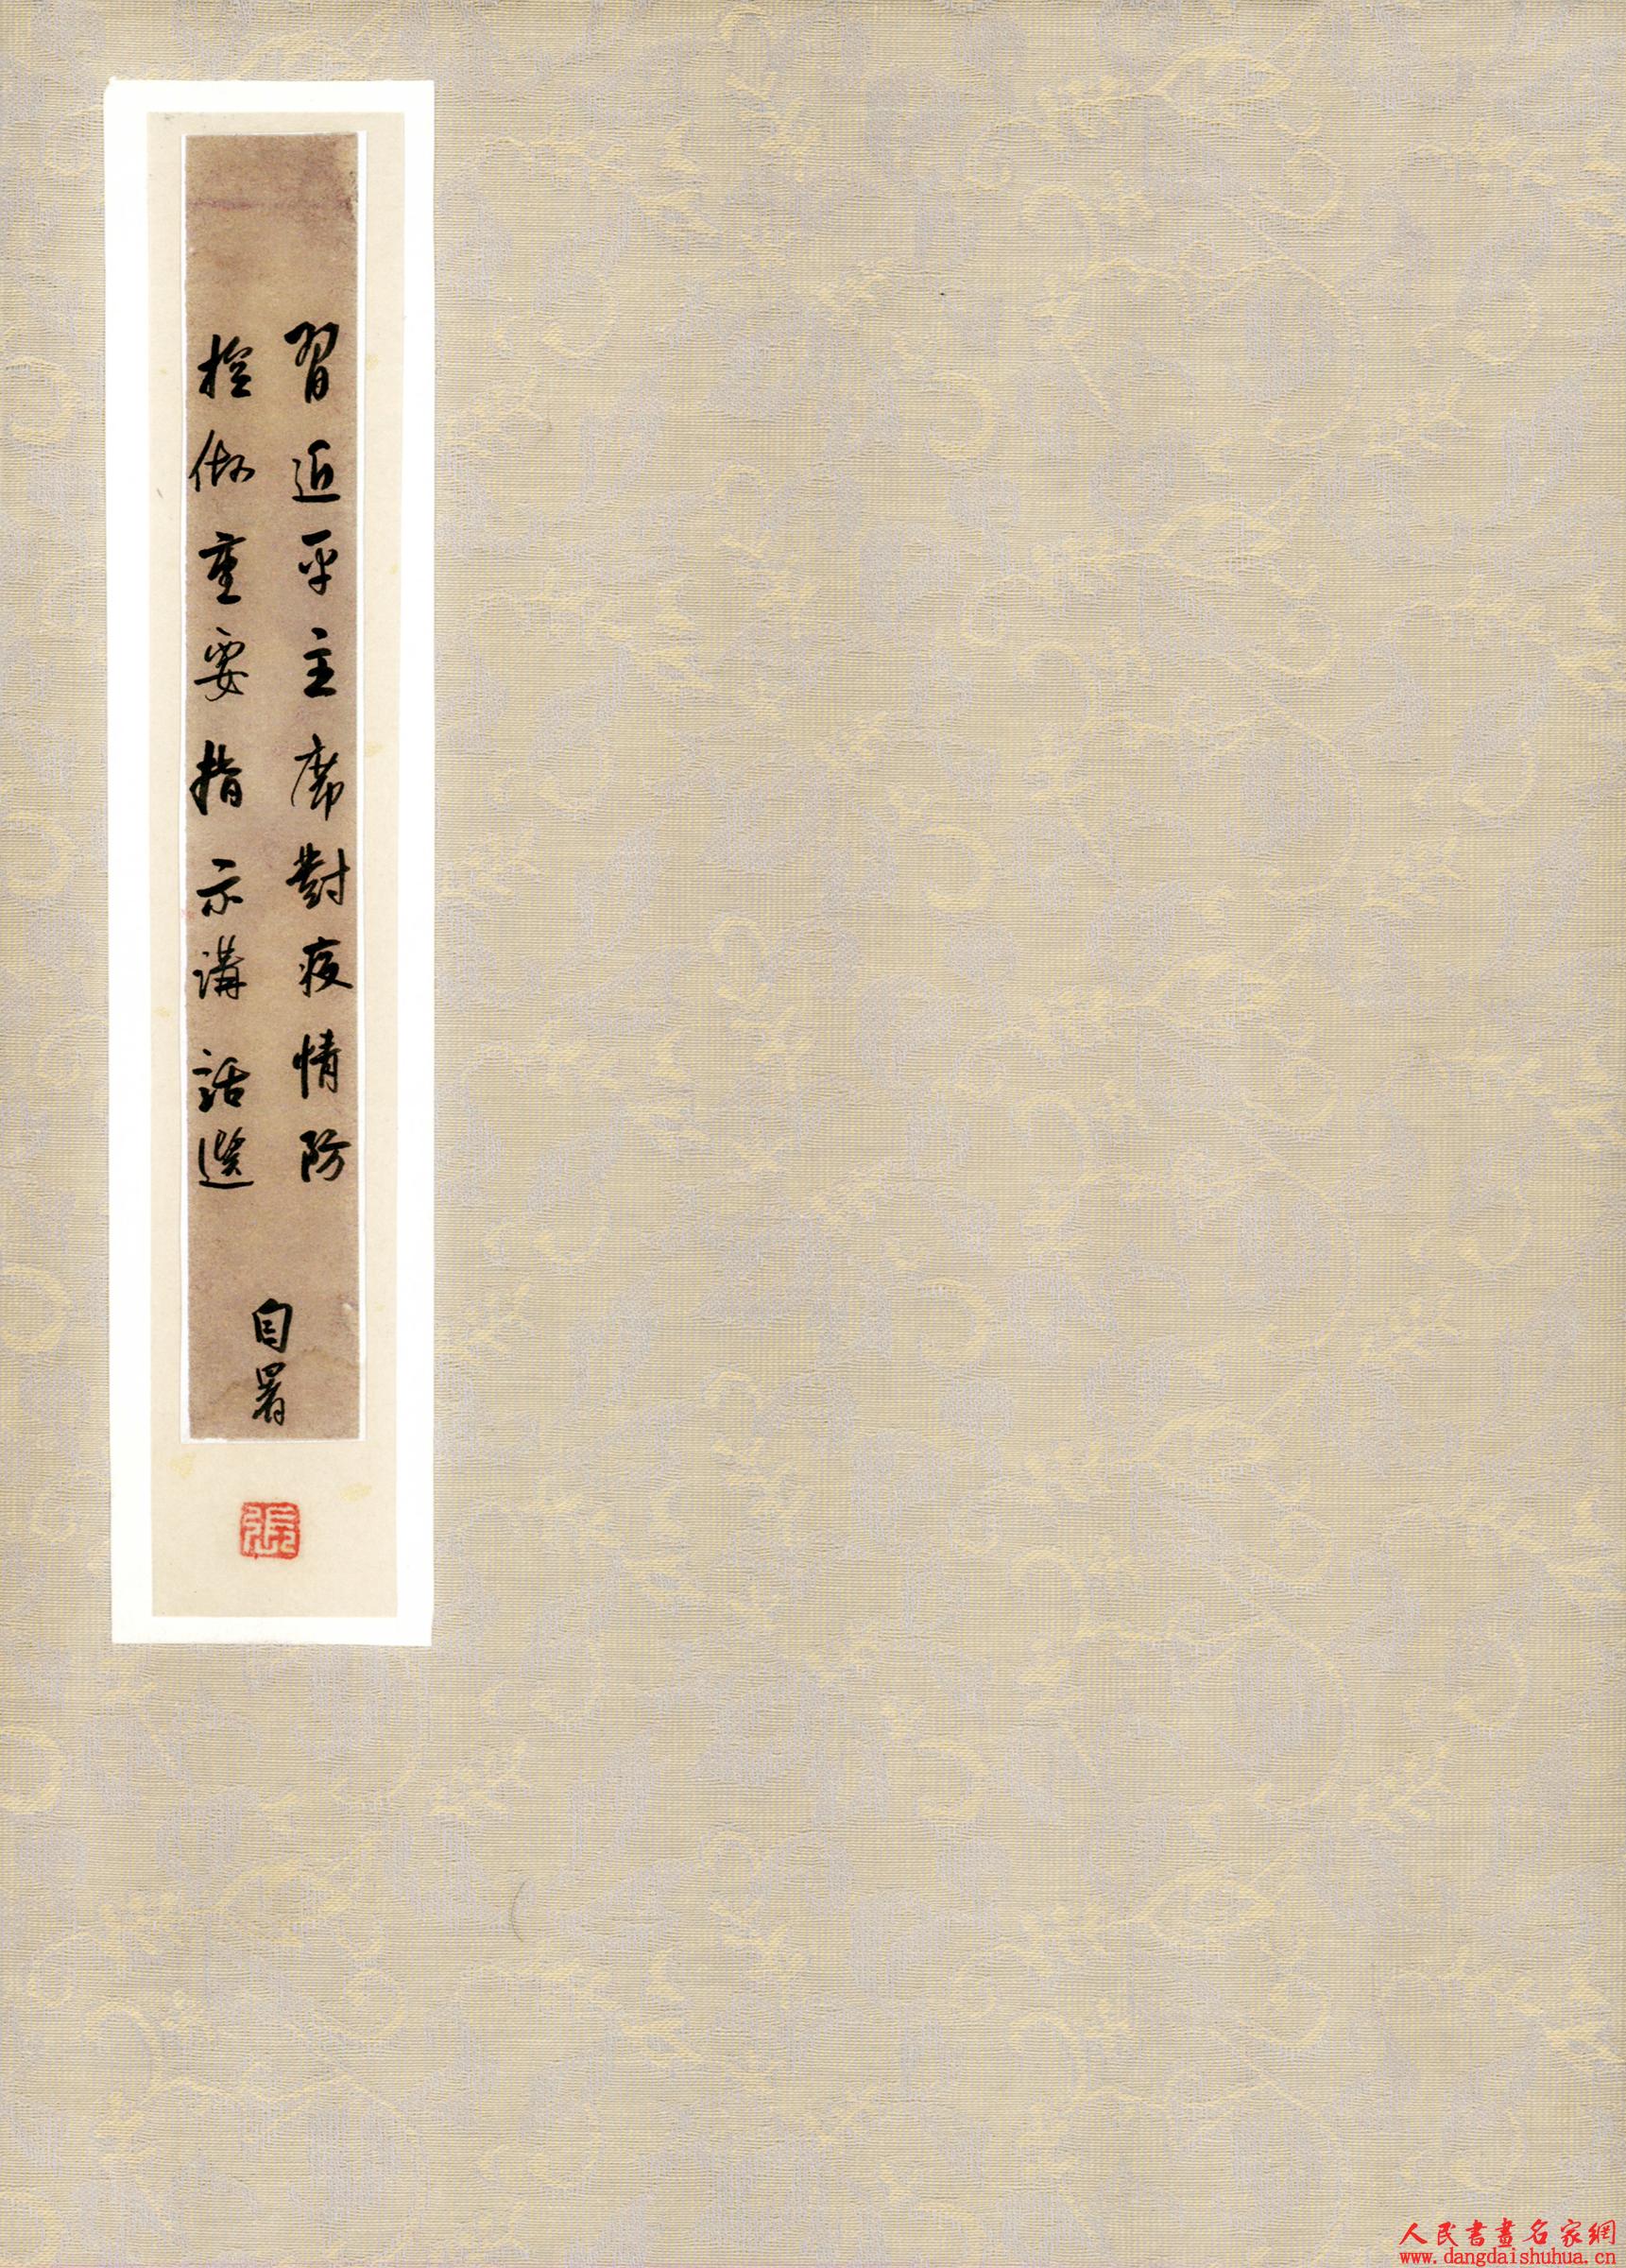 習近平主席對疫情防
控做重要指示講話選
自署
張
人民書畫名家網
www.dangdaishuhua.cn